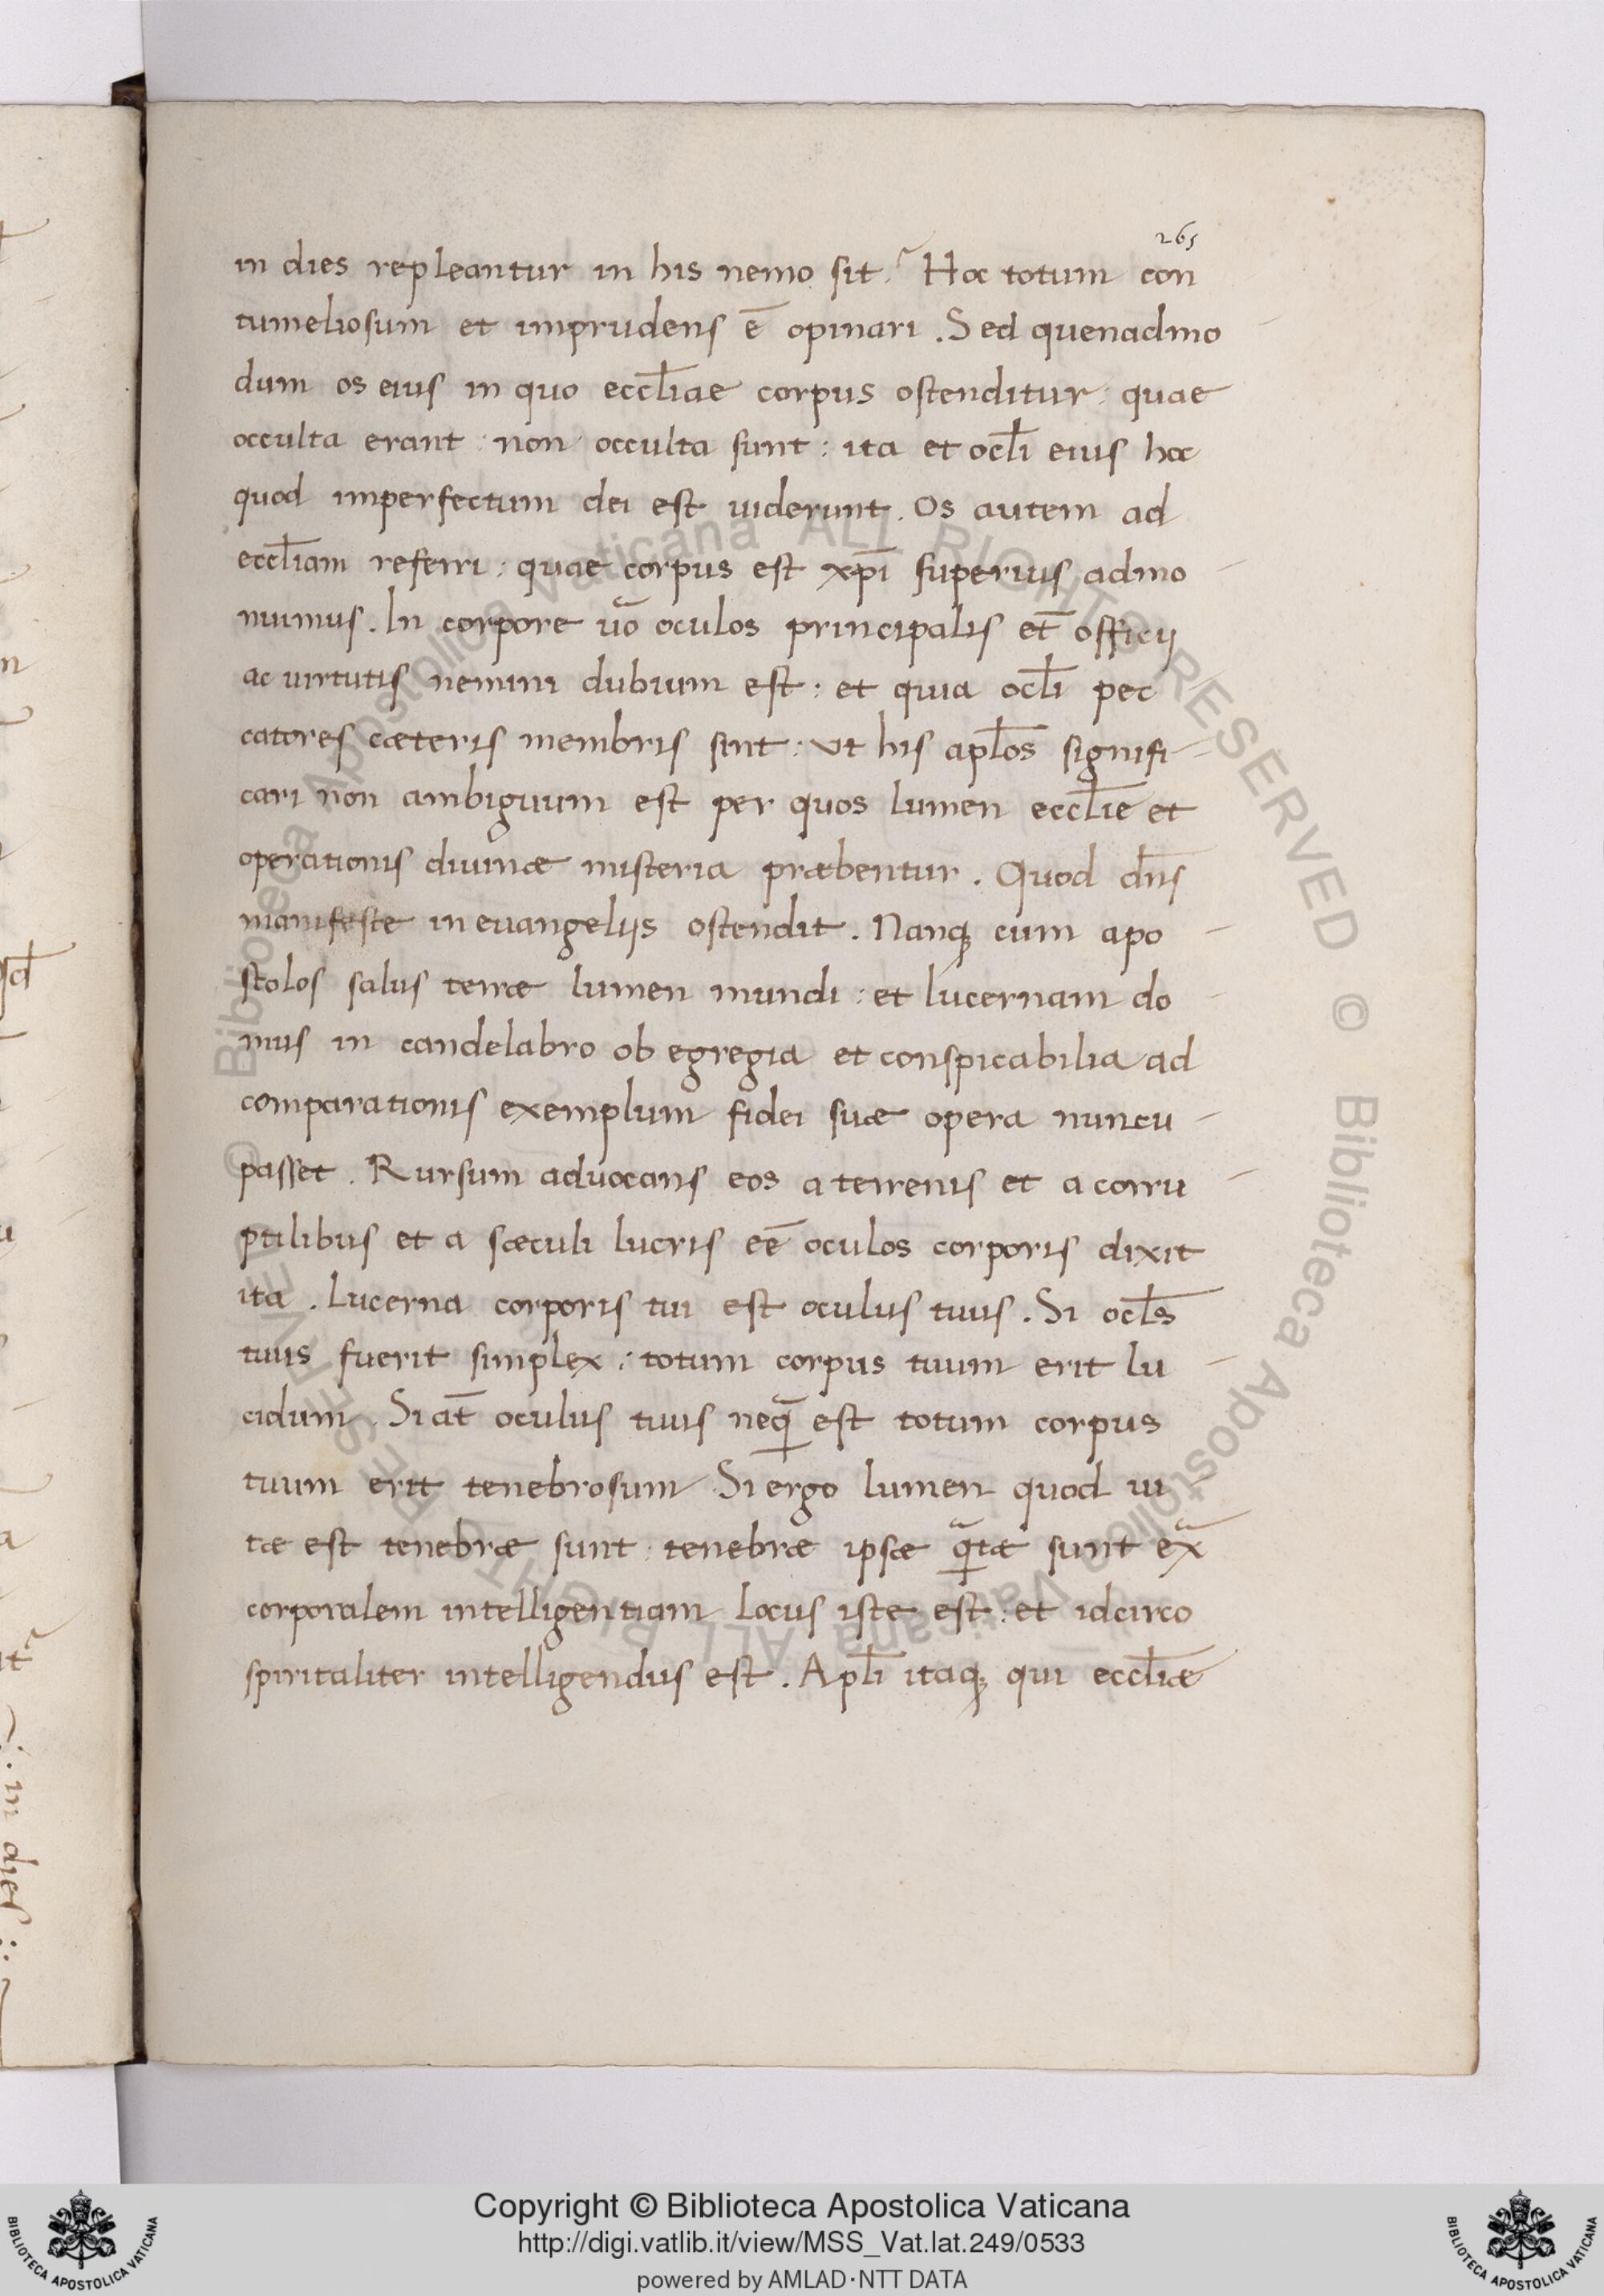 265
in dies repleantur in his nemo sit? Hoc totum con
tumeliosum et imprudens ē opinari. Sed quenadmo
dum os eius in quo eccl̄iae corpus ostenditur: quae
occulta erant: non occulta sunt: ita et ocl̄i eius hoc
quod imperfectum dei est uiderunt. Os autem ad
eccl̄iam referri: quae corpus est xp̄i superius admo
nuimus. In corpore ūo oculos principalis et̄ officij
ac uirtutis nemini dubium est: et quia ocl̄i pec
catores cæteris membris sint: ut his apl̄os signifi-
cari non ambiguum est per quos lumen eccl̄ie et
operationis diuinæ misteria præbentur. Quod dn̄s
manifeste in euangelijs ostendit. Nanq; cum apo
stolos salus terræ lumen mundi: et lucernam do
mus in candelabro ob egregia et conspicabilia ad
comparationis exemplum fidei suæ opera nuncu
passet. Rursum aduocans eos a terrenis et a corru
ptilibus et a sæculi lucris eē oculos corporis dixit
ita. Lucerna corporis tui est oculus tuus. Si ocl̄s
tuus fuerit simplex: totum corpus tuum erit lu
cidum. Si at̄ oculus tuus neq̄ est totum corpus
tuum erit tenebrosum. Si ergo lumen quod ui
tæ est tenebræ sunt: tenebræ ipsæ q̄tæ sunt ex̄
corporalem intelligentiam locus iste est: et idcirco
spiritaliter intelligendus est. Apl̄i itaq; qui eccl̄iæ
in dies
© Biblioteca Apostolica Vaticana ALL RIGHTS RESERVED © Biblioteca Apostolica Vaticana ALL RIGHTS RESERVED
Copyright © Biblioteca Apostolica Vaticana
http://digi.vatlib.it/view/MSS_Vat.lat.249/0533
powered by AMLAD·NTT DATA
BIBLIOTECA APOSTOLICA VATICANA
BIBLIOTECA APOSTOLICA VATICANA